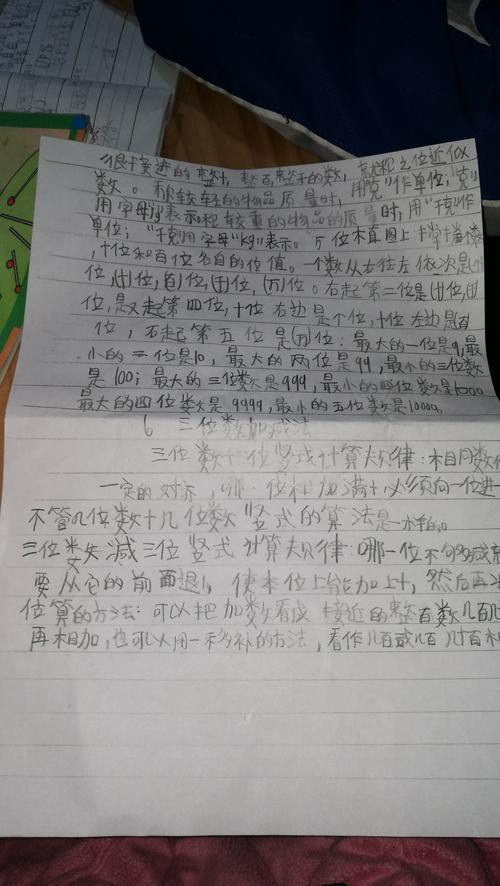 很接近的整十,整百,整千的数,就称之位近似
数。称较轻的物品质量时,用“克”作单位;“克”
用字母“g”表示称较重的物品的质量时,用“千克”作
单位;“千克用字母“kg”表示。
,十位和百位各自的位值。一个数从右往左依次是(个)
位,(十)位,(百)位,(千)位,(万)位。右起第二位是(十)位,(千)
位,是又起第四位,十位右边是个位,十位左边是百
位,右起第五位是(万)位:最大的一位是9,最
小的二位是10,最大的两位是99,最小的三位数
是100;最大的三位数是999,最小的四位数是1000
最大的四位数是9999,最小的五位数是10000。
6 三位数加减法
三位数 三位竖式计算规律:相同数位
一定的对齐,哪一位相加满十,必须向一位进一
不管几位数十几位数竖式的算法是一样的。
三位数减三位竖式计算规律:哪一位不够减
要从它的前面退1,使本位上能加上十,然后再
位算的方法:可以把加数看成接近的整百数几百几
再相加,也可以用一移多补的方法,看作几百或几百几十和